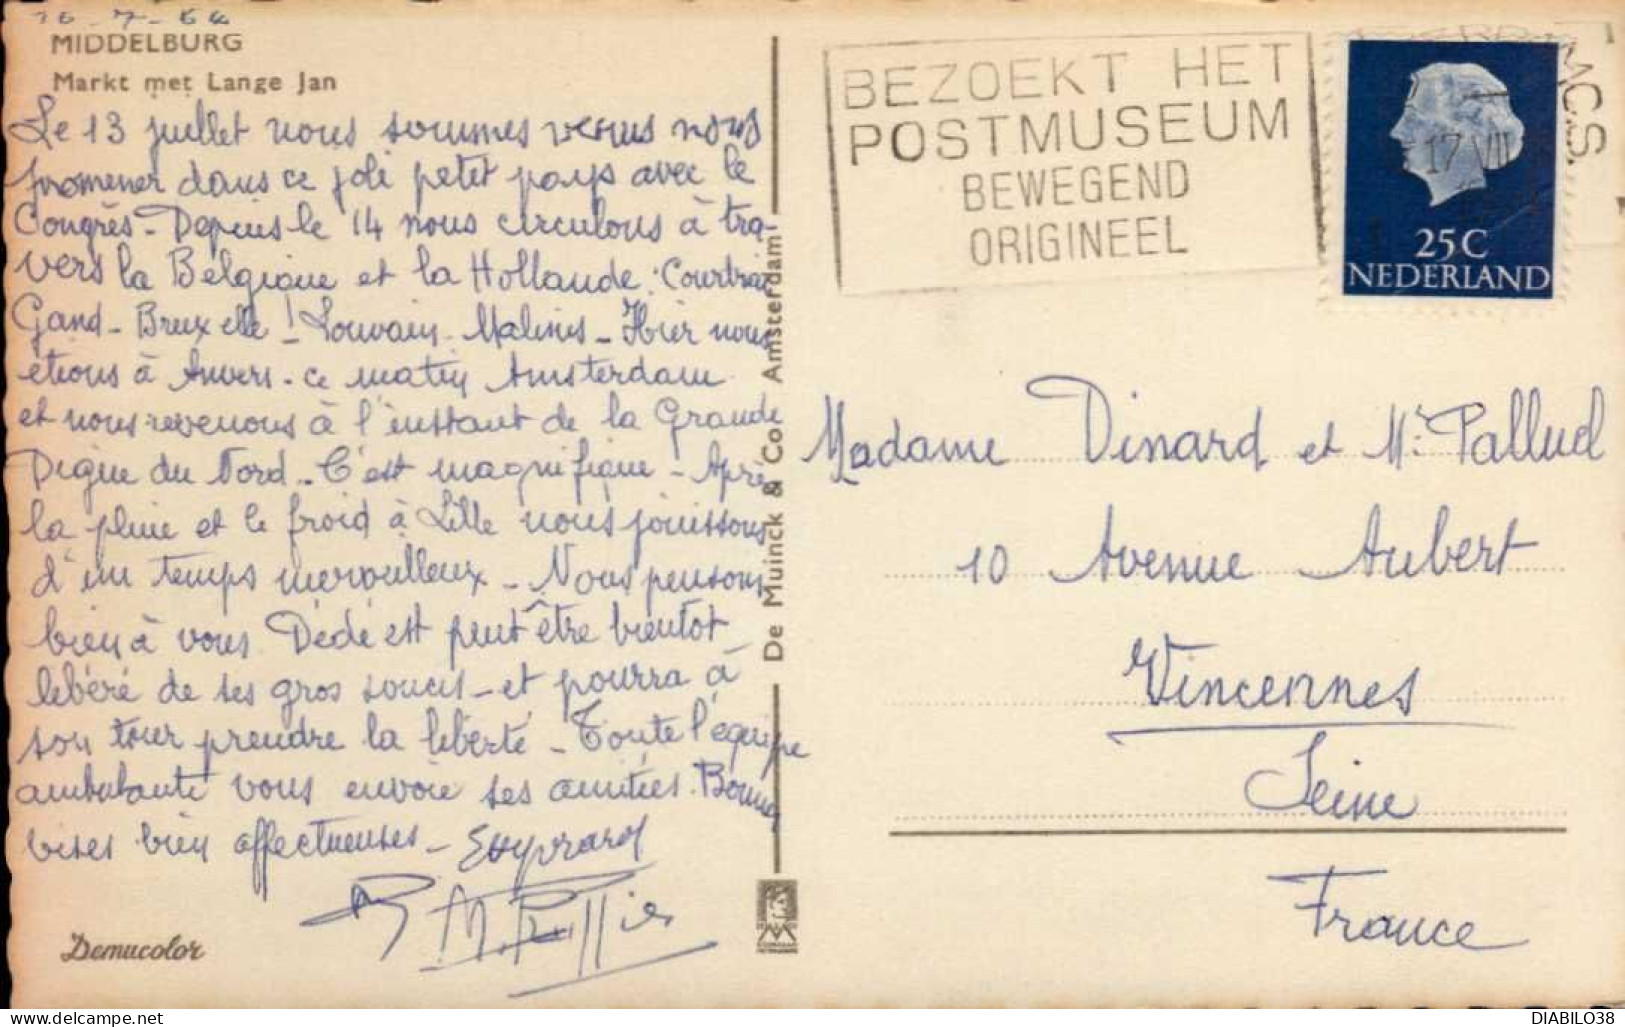 16-7-64
MIDDELBURG
Markt met Lange Jan
Le 13 juillet nous sommes venus nous
promener dans ce joli petit pays avec le
Congrès - Depuis le 14 nous circulons à tra-
vers la Belgique et la Hollande : Courtrai
Gand - Bruxelle ! Louvain - Malines - Hier nous
étions à Anvers - ce matin Amsterdam
et nous revenons à l'instant de la Grande
Digue du Nord - C'est magnifique - Après
la pluie et le froid à Lille nous jouissons
d'un temps merveilleux - Nous pensons
bien à vous Dédé est peut être bientot
libéré de ses gros soucis - et pourra à
son tour prendre la liberté - Toute l'équipe
ambulante vous envoie ses amitiés. Bonnes
bises bien affectueuses -
Demucolor
De Muinck & Co. Amsterdam
BEZOEKT HET
POSTMUSEUM
BEWEGEND
ORIGINEEL
17 VII
25C
NEDERLAND
Madame Dinard et Mr Pallud
10 Avenue Aubert
Vincennes
Seine
France
delcampe.net
DIABILO38